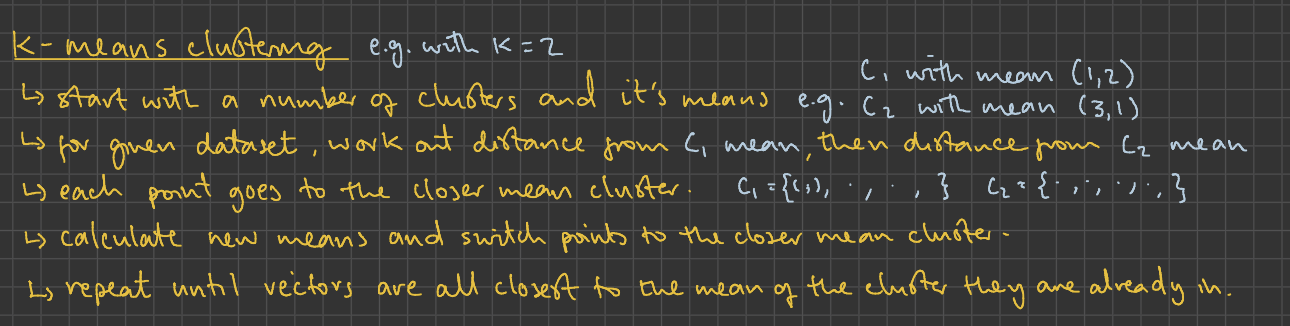 K-means clustering e.g. with K=2
C₁ with mean (1,2)
↳ start with a number of clusters and it's means e.g. C₂ with mean (3,1)
↳ for given dataset, work out distance from C₁ mean, then distance from C₂ mean
↳ each point goes to the closer mean cluster. C₁={(,), ·, ·, } C₂={·,·,·,·,}
↳ calculate new means and switch points to the closer mean cluster.
↳ repeat until vectors are all closest to the mean of the cluster they are already in.